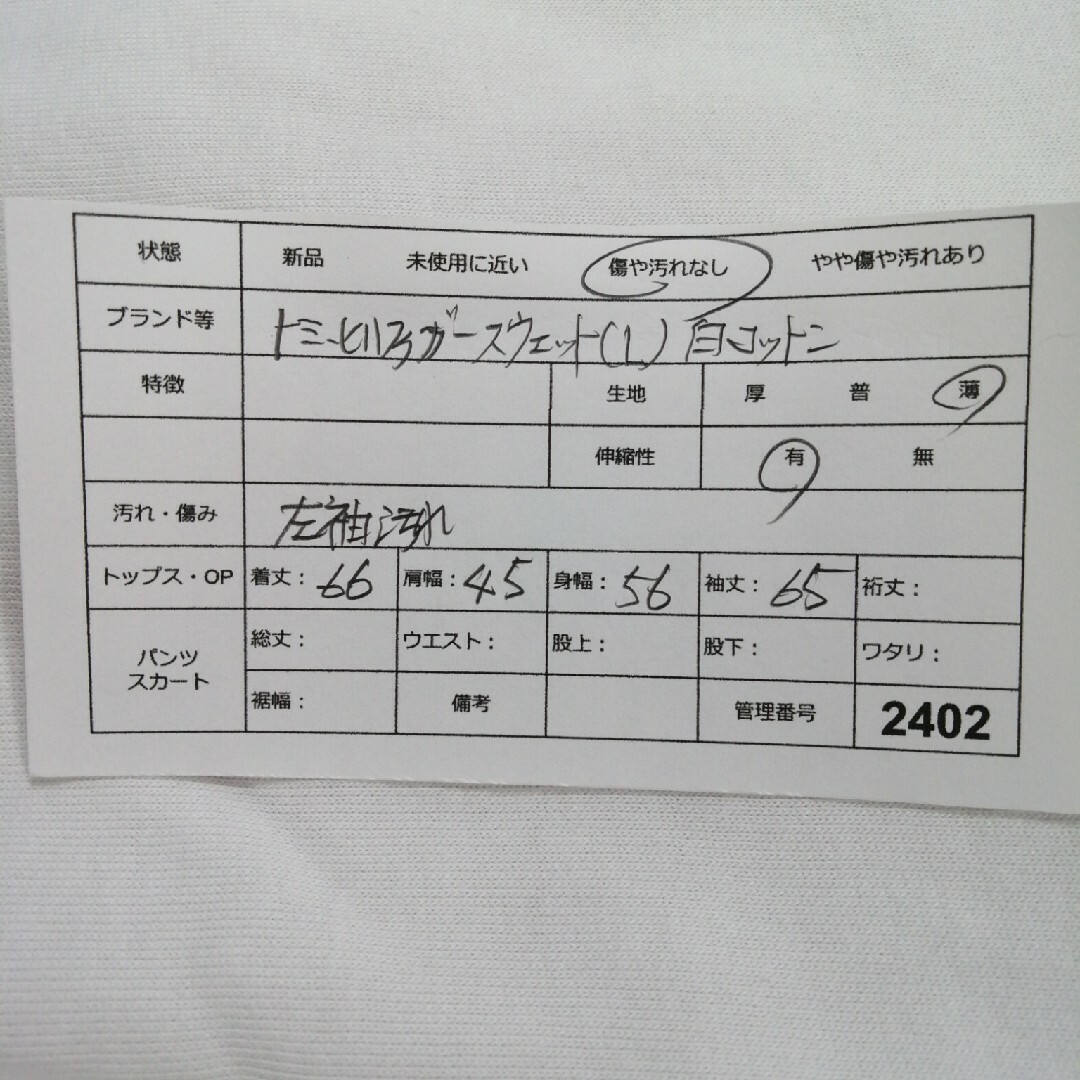 状態 新品 未使用に近い 傷や汚れなし やや傷や汚れあり
ブランド等 トミーヒルフィガースウェット(L) 白コットン
特徴 生地 厚 普 薄
伸縮性 有 無
汚れ・傷み 左袖汚れ
トップス・OP 着丈：66 肩幅：45 身幅：56 袖丈：65 裄丈：
パンツ スカート 総丈： ウエスト： 股上： 股下： ワタリ：
裾幅： 備考 管理番号 2402